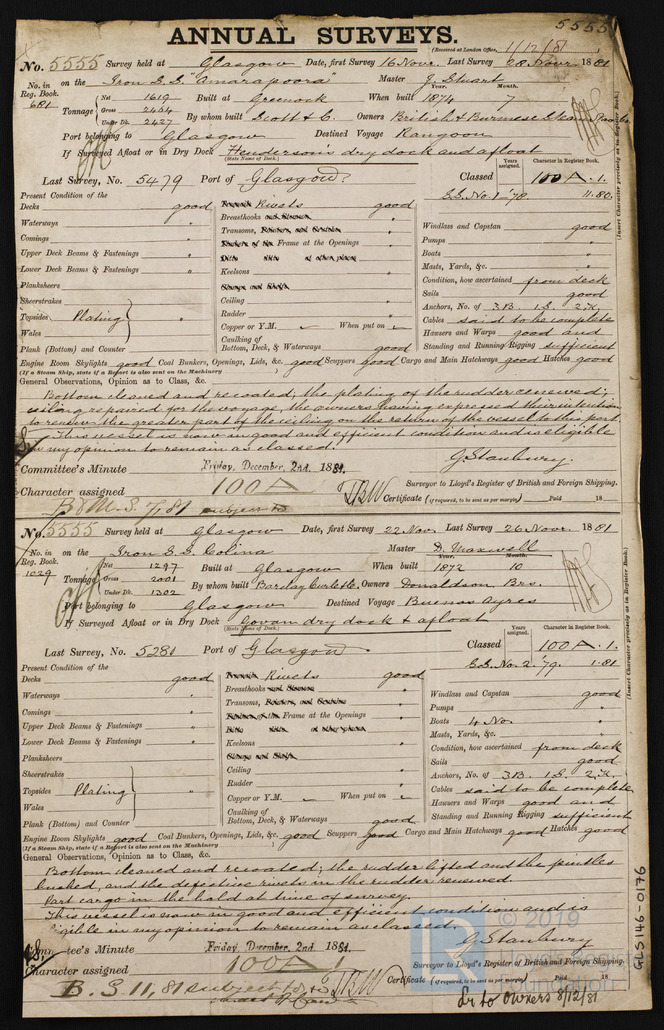 5555
ANNUAL SURVEYS.
(Received at London Office, 1/12/81
No. 5555 Survey held at Glasgow Date, first Survey 16 Novr. Last Survey 28 Novr. 1881
No. in Reg. Book. 681 on the Iron S.S. "Amarapoora" Master J. Stuart
Tonnage Net 1619 Gross 2464 Under Dk. 2427 Built at Greenock When built Year. 1874 Month. 7
By whom built Scott & C. Owners British & Burmese Steam
Port belonging to Glasgow Destined Voyage Rangoon
If Surveyed Afloat or in Dry Dock Henderson's dry dock and afloat
(State Name of Dock.)
Years assigned. Character in Register Book.
Last Survey, No. 5479 Port of Glasgow. Classed 100 A. 1.
S.S. No. 1 - 78 11.80.
(Insert Character precisely as in Register Book.)
Present Condition of the
Decks good
Waterways "
Comings "
Upper Deck Beams & Fastenings "
Lower Deck Beams & Fastenings "
Planksheers
Sheerstrakes
Topsides Plating "
Wales
Plank (Bottom) and Counter
Rivets good
Breasthooks "
Transoms, "
Frame at the Openings "
Keelsons "
Ceiling "
Rudder "
Copper or Y.M. When put on
Caulking of Bottom, Deck, & Waterways good
Windlass and Capstan good
Pumps "
Boats "
Masts, Yards, &c. "
Condition, how ascertained from deck
Sails good
Anchors, No. of 3B. 1S. 2K.
Cables said to be complete
Hawsers and Warps good and
Standing and Running Rigging sufficient
Engine Room Skylights good Coal Bunkers, Openings, Lids, &c. good Scuppers good Cargo and Main Hatchways good Hatches good
(If a Steam Ship, state if a Report is also sent on the Machinery
General Observations, Opinion as to Class, &c.
Bottom cleaned and recoated, the plating of the rudder renewed;
ceiling repaired for the voyage, the owners having expressed their intention
to renew the greater part of the ceiling on the return of the vessel to this port.
This vessel is now in good and efficient condition and is eligible
in my opinion to remain as classed.
G. Stanbury.
Committee's Minute Friday, December, 2nd, 1881. Surveyor to Lloyd's Register of British and Foreign Shipping.
Character assigned 100 A Certificate (if required, to be sent as per margin) Paid 18
B & M. S. 7/81 subject to
No. 5555 Survey held at Glasgow Date, first Survey 22 Nov. Last Survey 26 Novr. 1881
No. in Reg. Book. 1029 on the Iron S.S. Colina Master D. Maxwell
Tonnage Net 1297 Gross 2001 Under Dk. 1302 Built at Glasgow When built Year. 1872 Month. 10
By whom built Barclay Curle & C. Owners Donaldson Brs.
Port belonging to Glasgow Destined Voyage Buenos Ayres
If Surveyed Afloat or in Dry Dock Govan dry dock & afloat
(State Name of Dock.)
Years assigned. Character in Register Book.
Last Survey, No. 5281 Port of Glasgow Classed 100 A. 1.
S.S. No. 2. 79. 1.81
(Insert Character precisely as in Register Book.)
Present Condition of the
Decks good
Waterways "
Comings "
Upper Deck Beams & Fastenings "
Lower Deck Beams & Fastenings "
Planksheers
Sheerstrakes
Topsides Plating "
Wales
Plank (Bottom) and Counter
Rivets good
Breasthooks "
Transoms, "
Frame at the Openings "
Keelsons "
Ceiling "
Rudder "
Copper or Y.M. When put on
Caulking of Bottom, Deck, & Waterways good
Windlass and Capstan good
Pumps "
Boats 4 No. "
Masts, Yards, &c. "
Condition, how ascertained from deck
Sails good
Anchors, No. of 3B. 1S. 2K.
Cables said to be complete
Hawsers and Warps good and
Standing and Running Rigging sufficient
Engine Room Skylights good Coal Bunkers, Openings, Lids, &c. good Scuppers good Cargo and Main Hatchways good Hatches good
(If a Steam Ship, state if a Report is also sent on the Machinery
General Observations, Opinion as to Class, &c.
Bottom cleaned and recoated; the rudder lifted and the pintles
bushed, and the defective rivets in the rudder renewed.
Part cargo in the hold at time of survey.
This vessel is now in good and efficient condition and is
eligible in my opinion to remain as classed.
G. Stanbury
© 2019
Committee's Minute Friday, December, 2nd, 1881. Surveyor to Lloyd's Register of British and Foreign Shipping.
Character assigned 100 A 1 Certificate (if required, to be sent as per margin) Paid 18
B.S 11,81 subject to
Lr to Owners 8/12/81
GLS146-0176